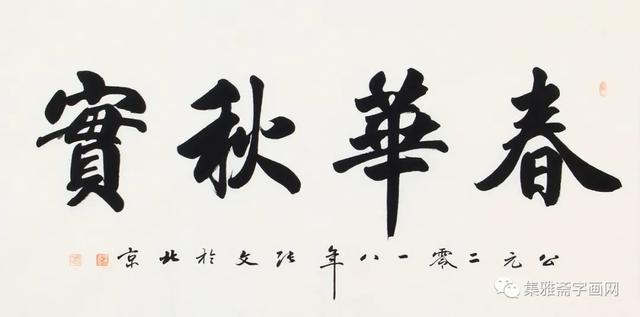 春華秋實
公元二零一八年張文於北京
集雅斋字画网